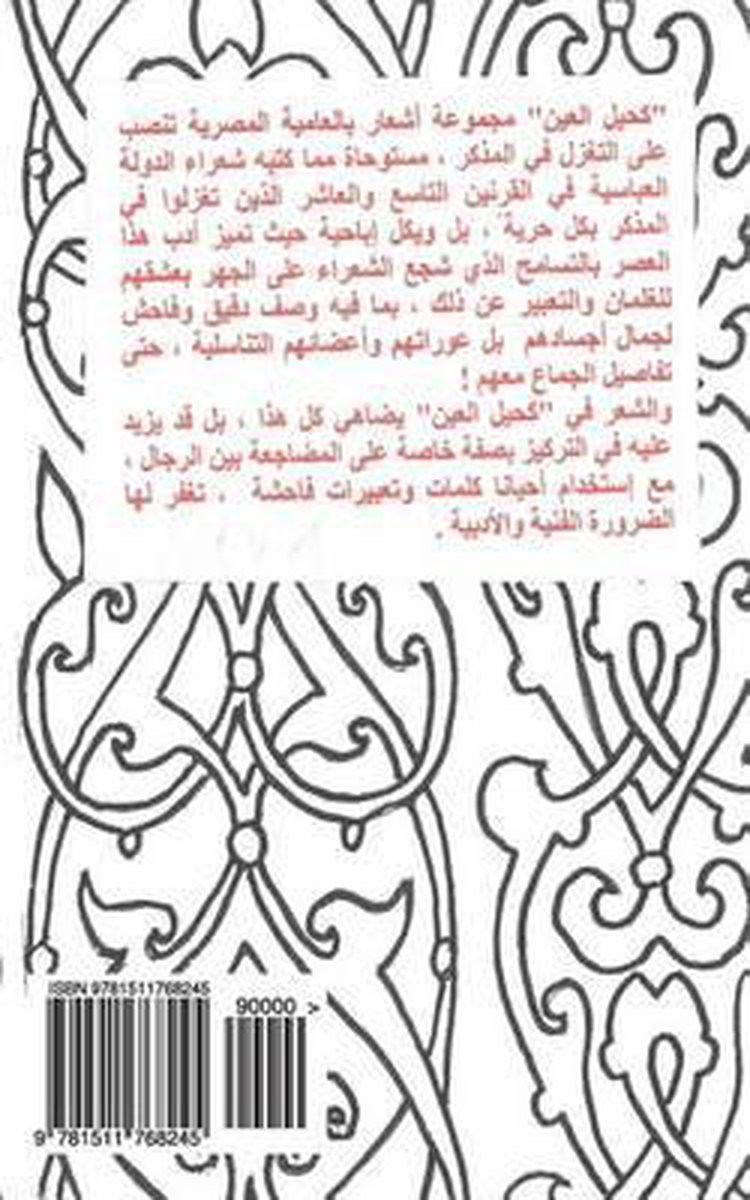 "كحيل العين" مجموعة أشعار بالعامية المصرية تنصب
على التغزل في المذكر ، مستوحاة مما كتبه شعراء الدولة
العباسية في القرنين التاسع والعاشر الذين تغزلوا في
المذكر بكل حرية ، بل وبكل إباحية حيث تميز أدب هذا
العصر بالتسامح الذي شجع الشعراء على الجهر بعشقهم
للغلمان والتعبير عن ذلك ، بما فيه وصف دقيق وفاحش
لجمال أجسادهم بل عوراتهم وأعضائهم التناسلية ، حتى
تفاصيل الجماع معهم !
والشعر في "كحيل العين" يضاهي كل هذا ، بل قد يزيد
عليه في التركيز بصفة خاصة على المضاجعة بين الرجال ،
مع إستخدام أحيانا كلمات وتعبيرات فاحشة ، تغفر لها
الضرورة الفنية والأدبية .
ISBN 9781511768245
90000 >
9 781511 768245